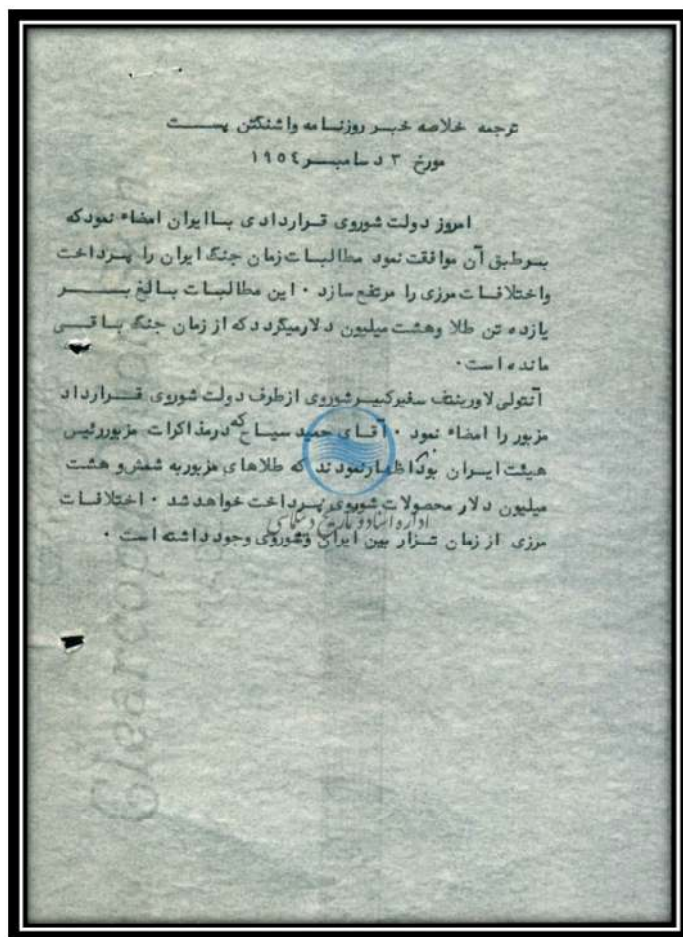 ترجمه خلاصه خبر روزنامه واشنگتن پست
مورخ ۳ دسامبر ۱۹۵۴
امروز دولت شوروی قراردادی با ایران امضاء نمود که
برطبق آن موافقت نمود مطالبات زمان جنگ ایران را پرداخت
واختلافات مرزی را مرتفع سازد ۰ این مطالبات بالغ بر
یازده تن طلا وهشت میلیون دلار میگردد که از زمان جنگ باقی
مانده است ۰
آنتولی لاورینتف سفیرکبیر شوروی ازطرف دولت شوروی قرارداد
مزبور را امضاء نمود ۰ آقای حمید سیاح که درمذاکرات مزبور رئیس
هیئت ایران بود اظهار نمودند که طلاهای مزبور به شمش و هشت
میلیون دلار محصولات شوروی پرداخت خواهد شد ۰ اختلافات
اداره اسناد و تاریخ دیپلماسی
مرزی از زمان تزار بین ایران وشوروی وجود داشته است ۰
Clearcopy